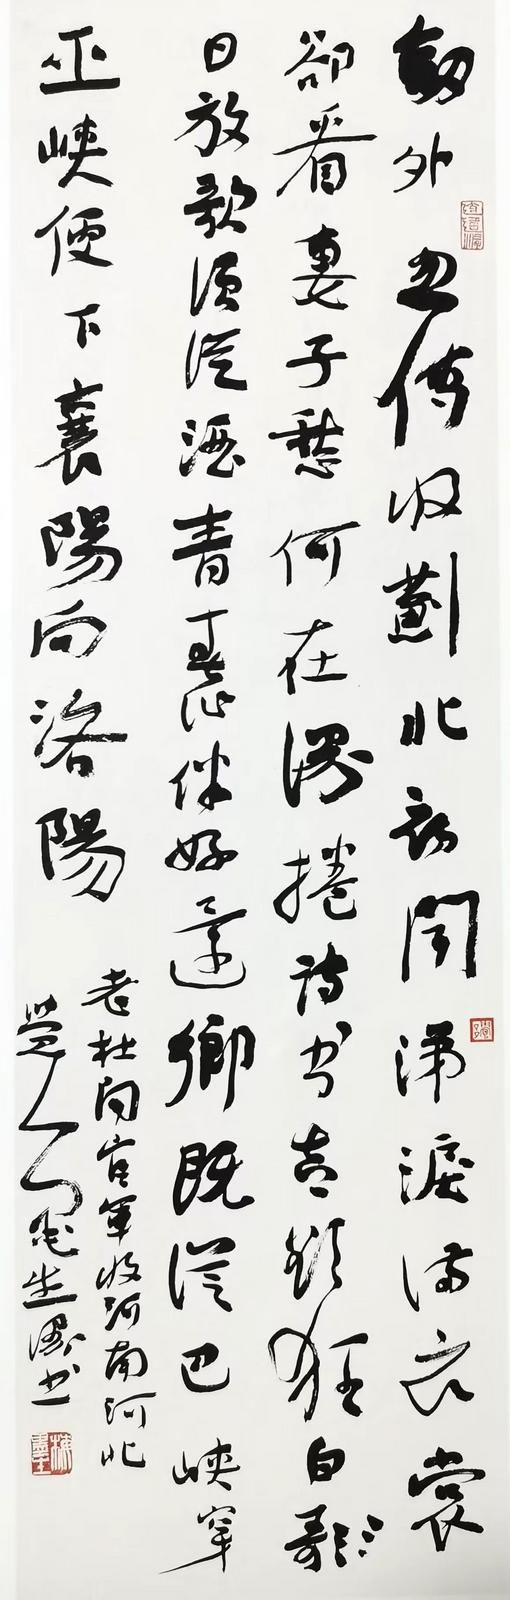 劍外忽傳收薊北初聞涕淚滿衣裳
卻看妻子愁何在漫捲詩書喜欲狂白歌
日放歌須從酒青春作伴好還鄉既從巴峽穿
巫峽便下襄陽向洛陽
老杜聞官軍收河南河北
人生書